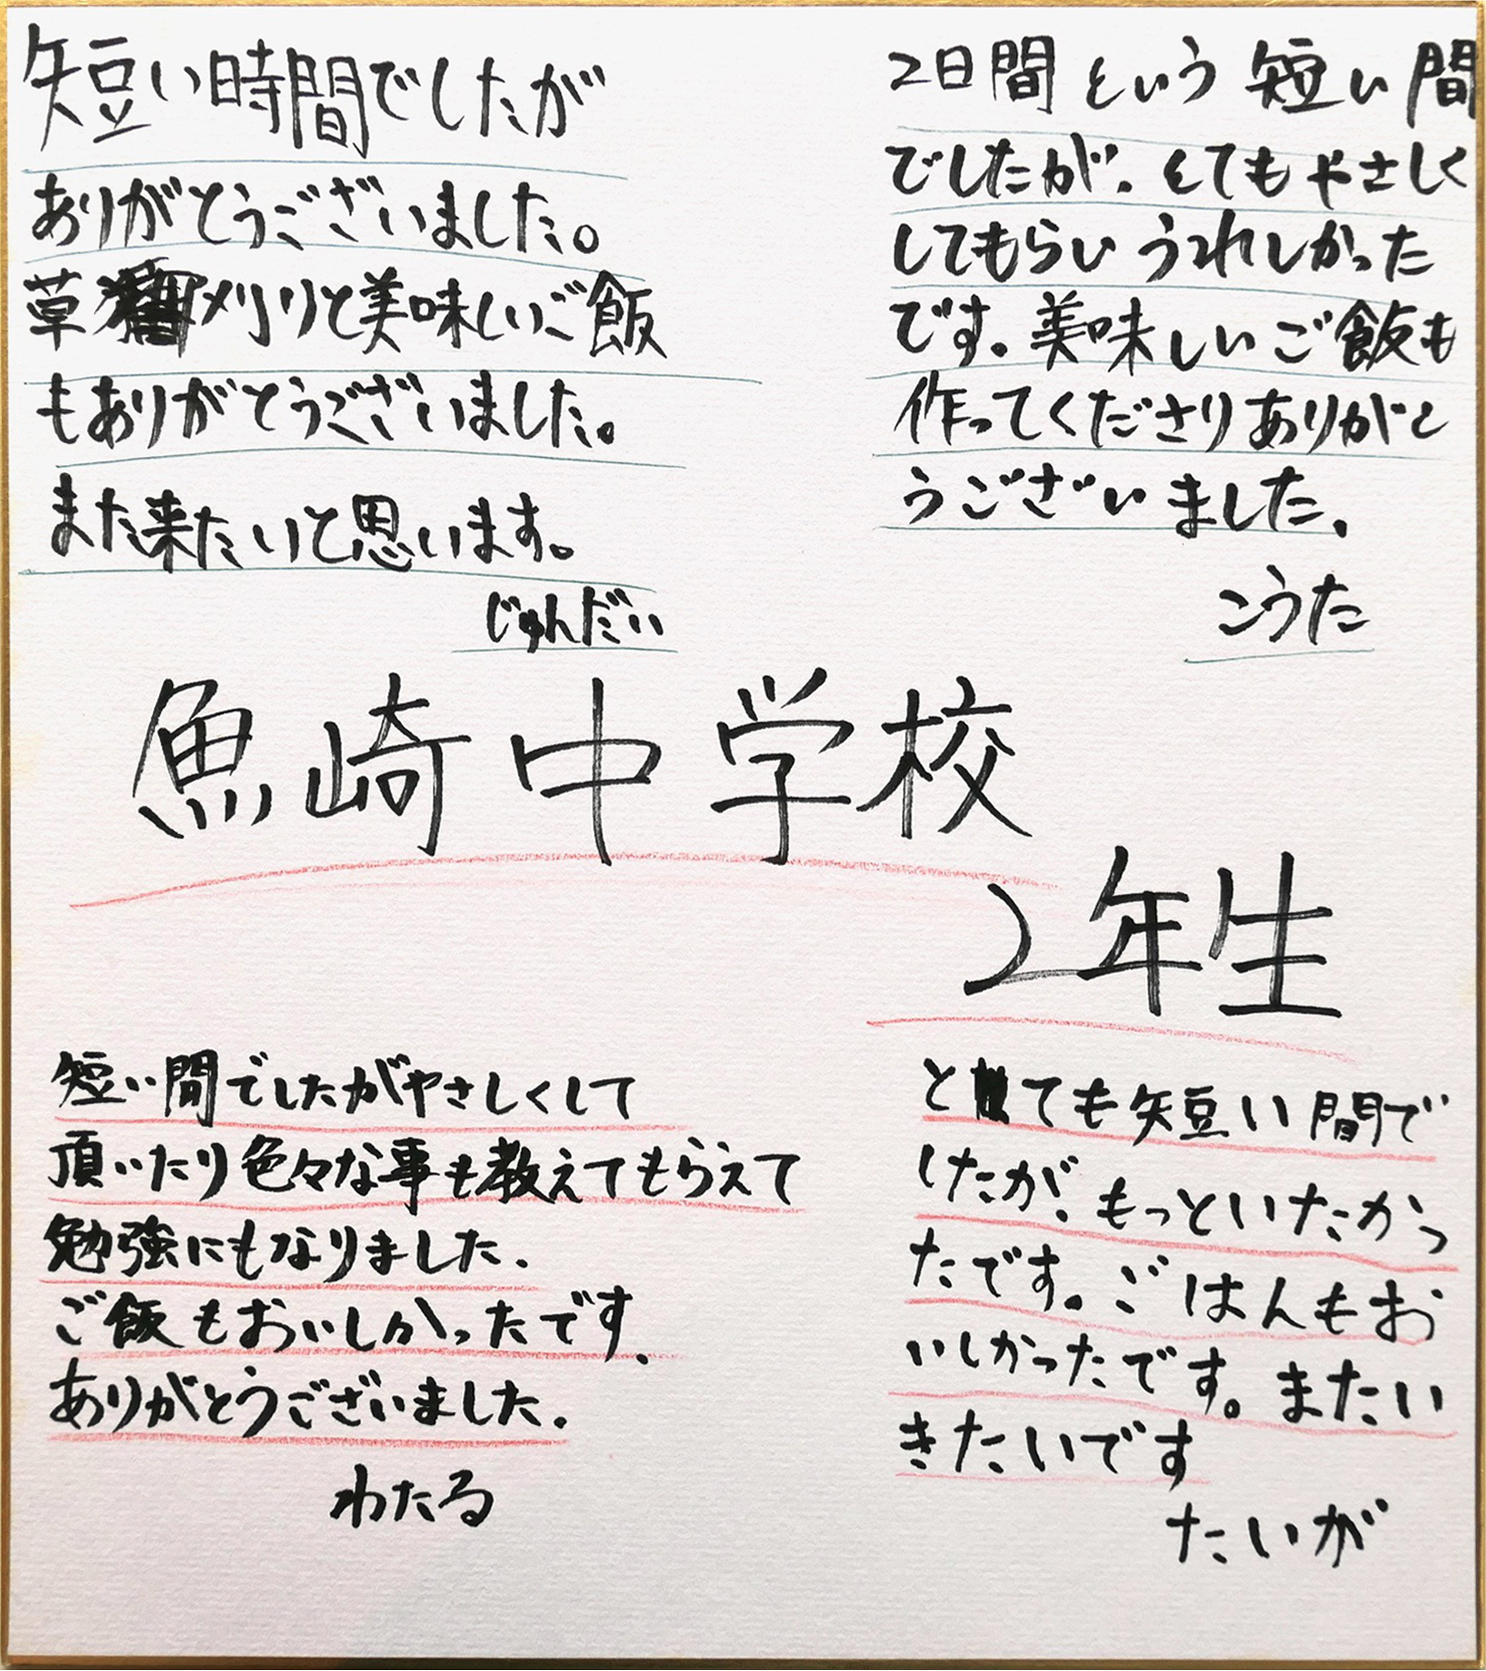 短い時間でしたが
ありがとうございました。
草刈りと美味しいご飯
もありがとうございました。
また来たいと思います。
じゅんだい
2日間という短い間
でしたが、とてもやさしく
してもらいうれしかった
です。美味しいご飯も
作ってくださりありがと
うございました。
こうた
魚崎中学校
2年生
短い間でしたがやさしくして
頂いたり色々な事も教えてもらえて
勉強にもなりました。
ご飯もおいしかったです。
ありがとうございました。
わたる
とても短い間で
したが、もっといたかっ
たです。ごはんもお
いしかったです。またい
きたいです
たいが